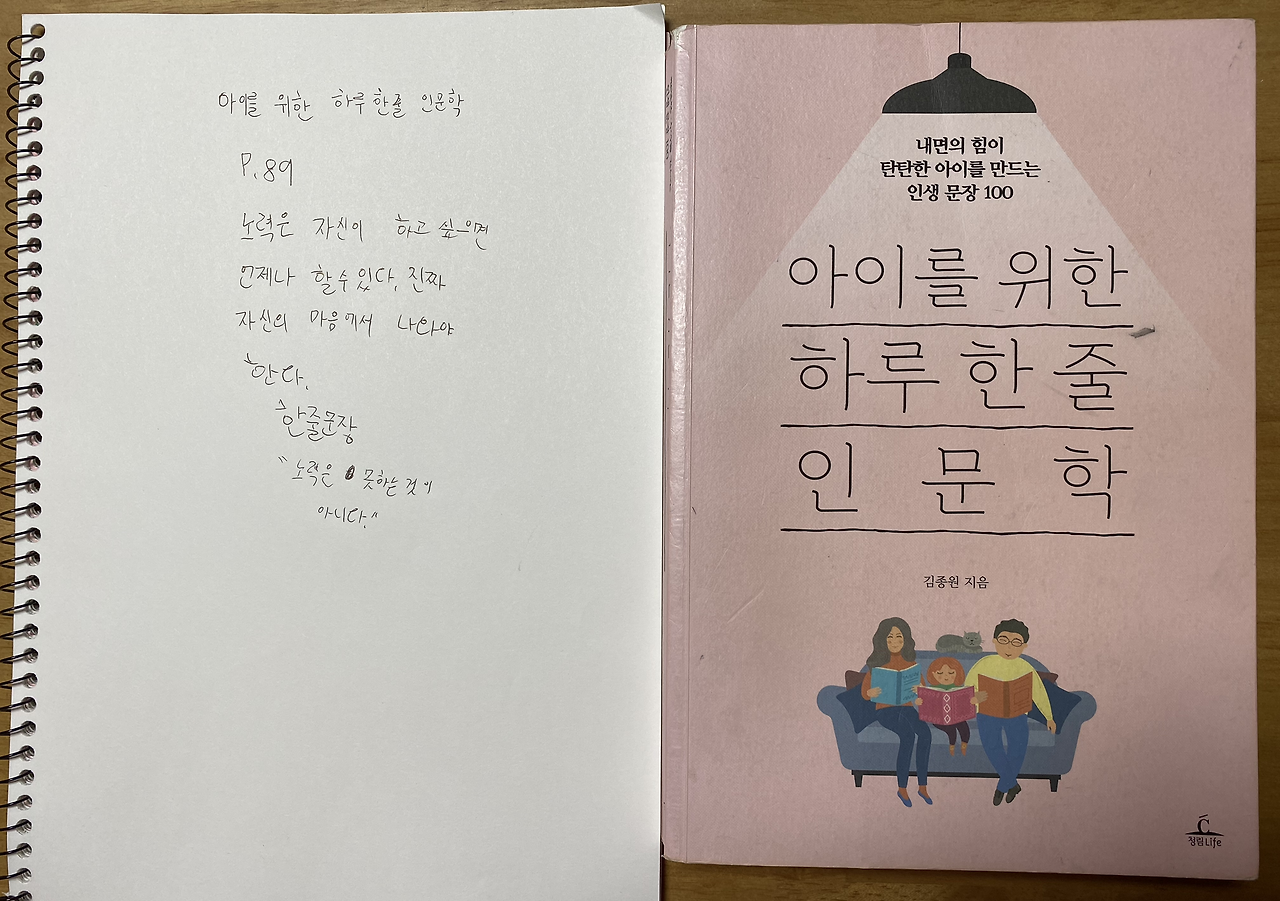 아이를 위한 하루 한줄 인문학
P.89
노력은 자신이 하고 싶으면
언제나 할 수 있다, 진짜
자신의 마음에서 나와야
한다.
한줄문장
"노력은 못하는 것이
아니다."
내면의 힘이
탄탄한 아이를 만드는
인생 문장 100
아이를 위한
하루 한 줄
인 문 학
김종원 지음
청림Life